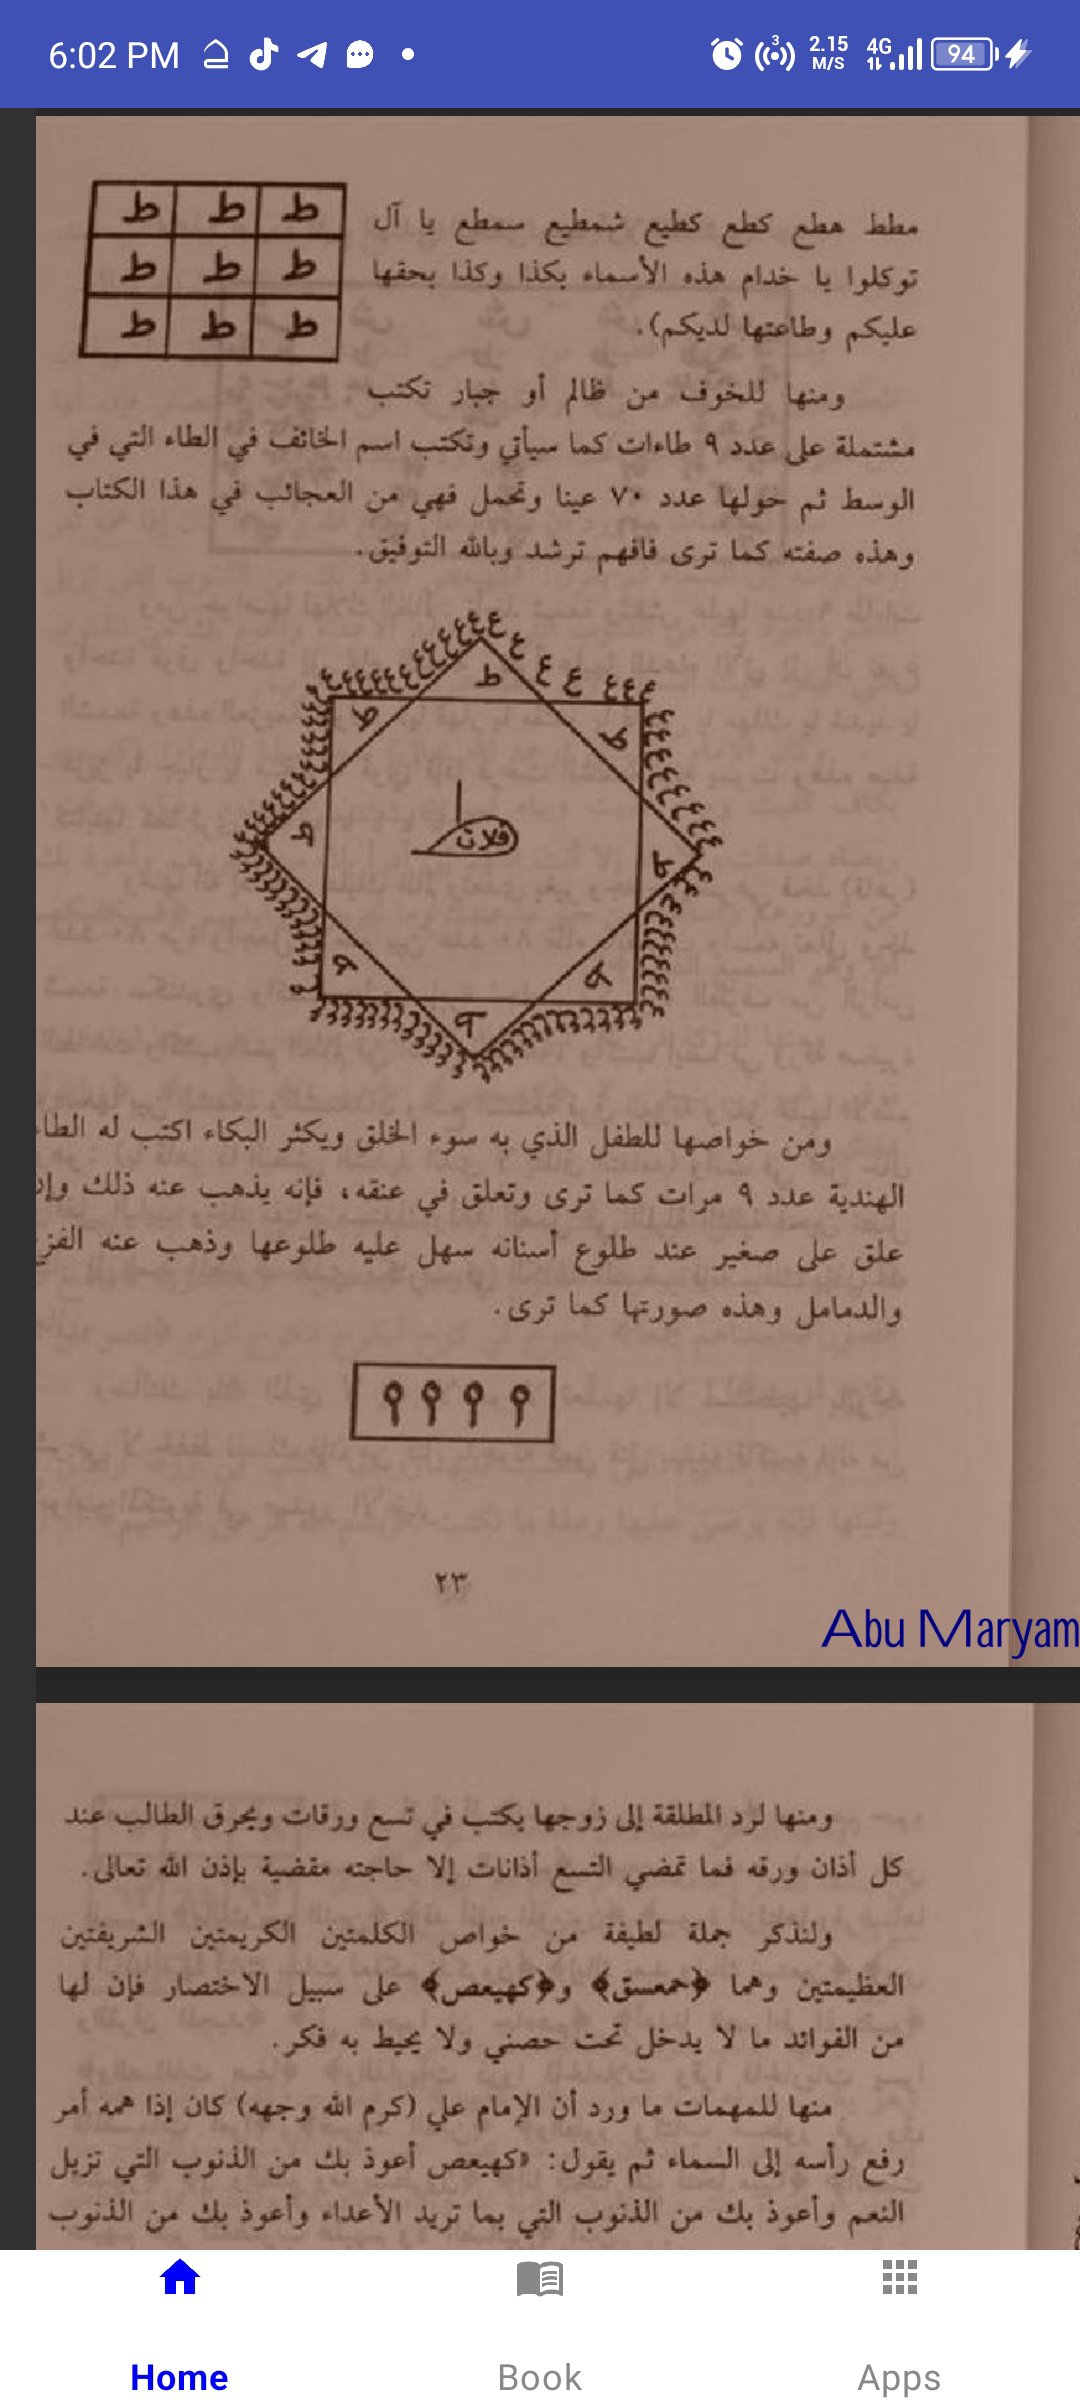 6:02 PM
2.15 M/S 4G 94
ط ط ط
ط ط ط
ط ط ط
مطط هطع كطع كطيع شمطيع سمطع يا آل
توكلوا يا خدام هذه الأسماء بكذا وكذا بحقها
عليكم وطاعتها لديكم).
ومنها للخوف من ظالم أو جبار تكتب
مشتملة على عدد ٩ طاءات كما سيأتي وتكتب اسم الخائف في الطاء التي في
الوسط ثم حولها عدد ٧٠ عينا وتحمل فهي من العجائب في هذا الكتاب
وهذه صفته كما ترى فافهم ترشد وبالله التوفيق.
فلان
ومن خواصها للطفل الذي به سوء الخلق ويكثر البكاء اكتب له الطاء
الهندية عدد ٩ مرات كما ترى وتعلق في عنقه، فإنه يذهب عنه ذلك وإن
علق على صغير عند طلوع أسنانه سهل عليه طلوعها وذهب عنه الفزع
والدمامل وهذه صورتها كما ترى.
٩ ٩ ٩ ٩
٢٣
Abu Maryam
ومنها لرد المطلقة إلى زوجها يكتب في تسع ورقات ويحرق الطالب عند
كل أذان ورقه فما تمضي التسع أذانات إلا حاجته مقضية بإذن الله تعالى.
ولنذكر جملة لطيفة من خواص الكلمتين الكريمتين الشريفتين
العظيمتين وهما ﴿حمعسق﴾ و﴿كهيعص﴾ على سبيل الاختصار فإن لها
من الفوائد ما لا يدخل تحت حصني ولا يحيط به فكر.
منها للمهمات ما ورد أن الإمام علي (كرم الله وجهه) كان إذا همه أمر
رفع رأسه إلى السماء ثم يقول: «كهيعص أعوذ بك من الذنوب التي تزيل
النعم وأعوذ بك من الذنوب التي بما تريد الأعداء وأعوذ بك من الذنوب
Home
Book
Apps